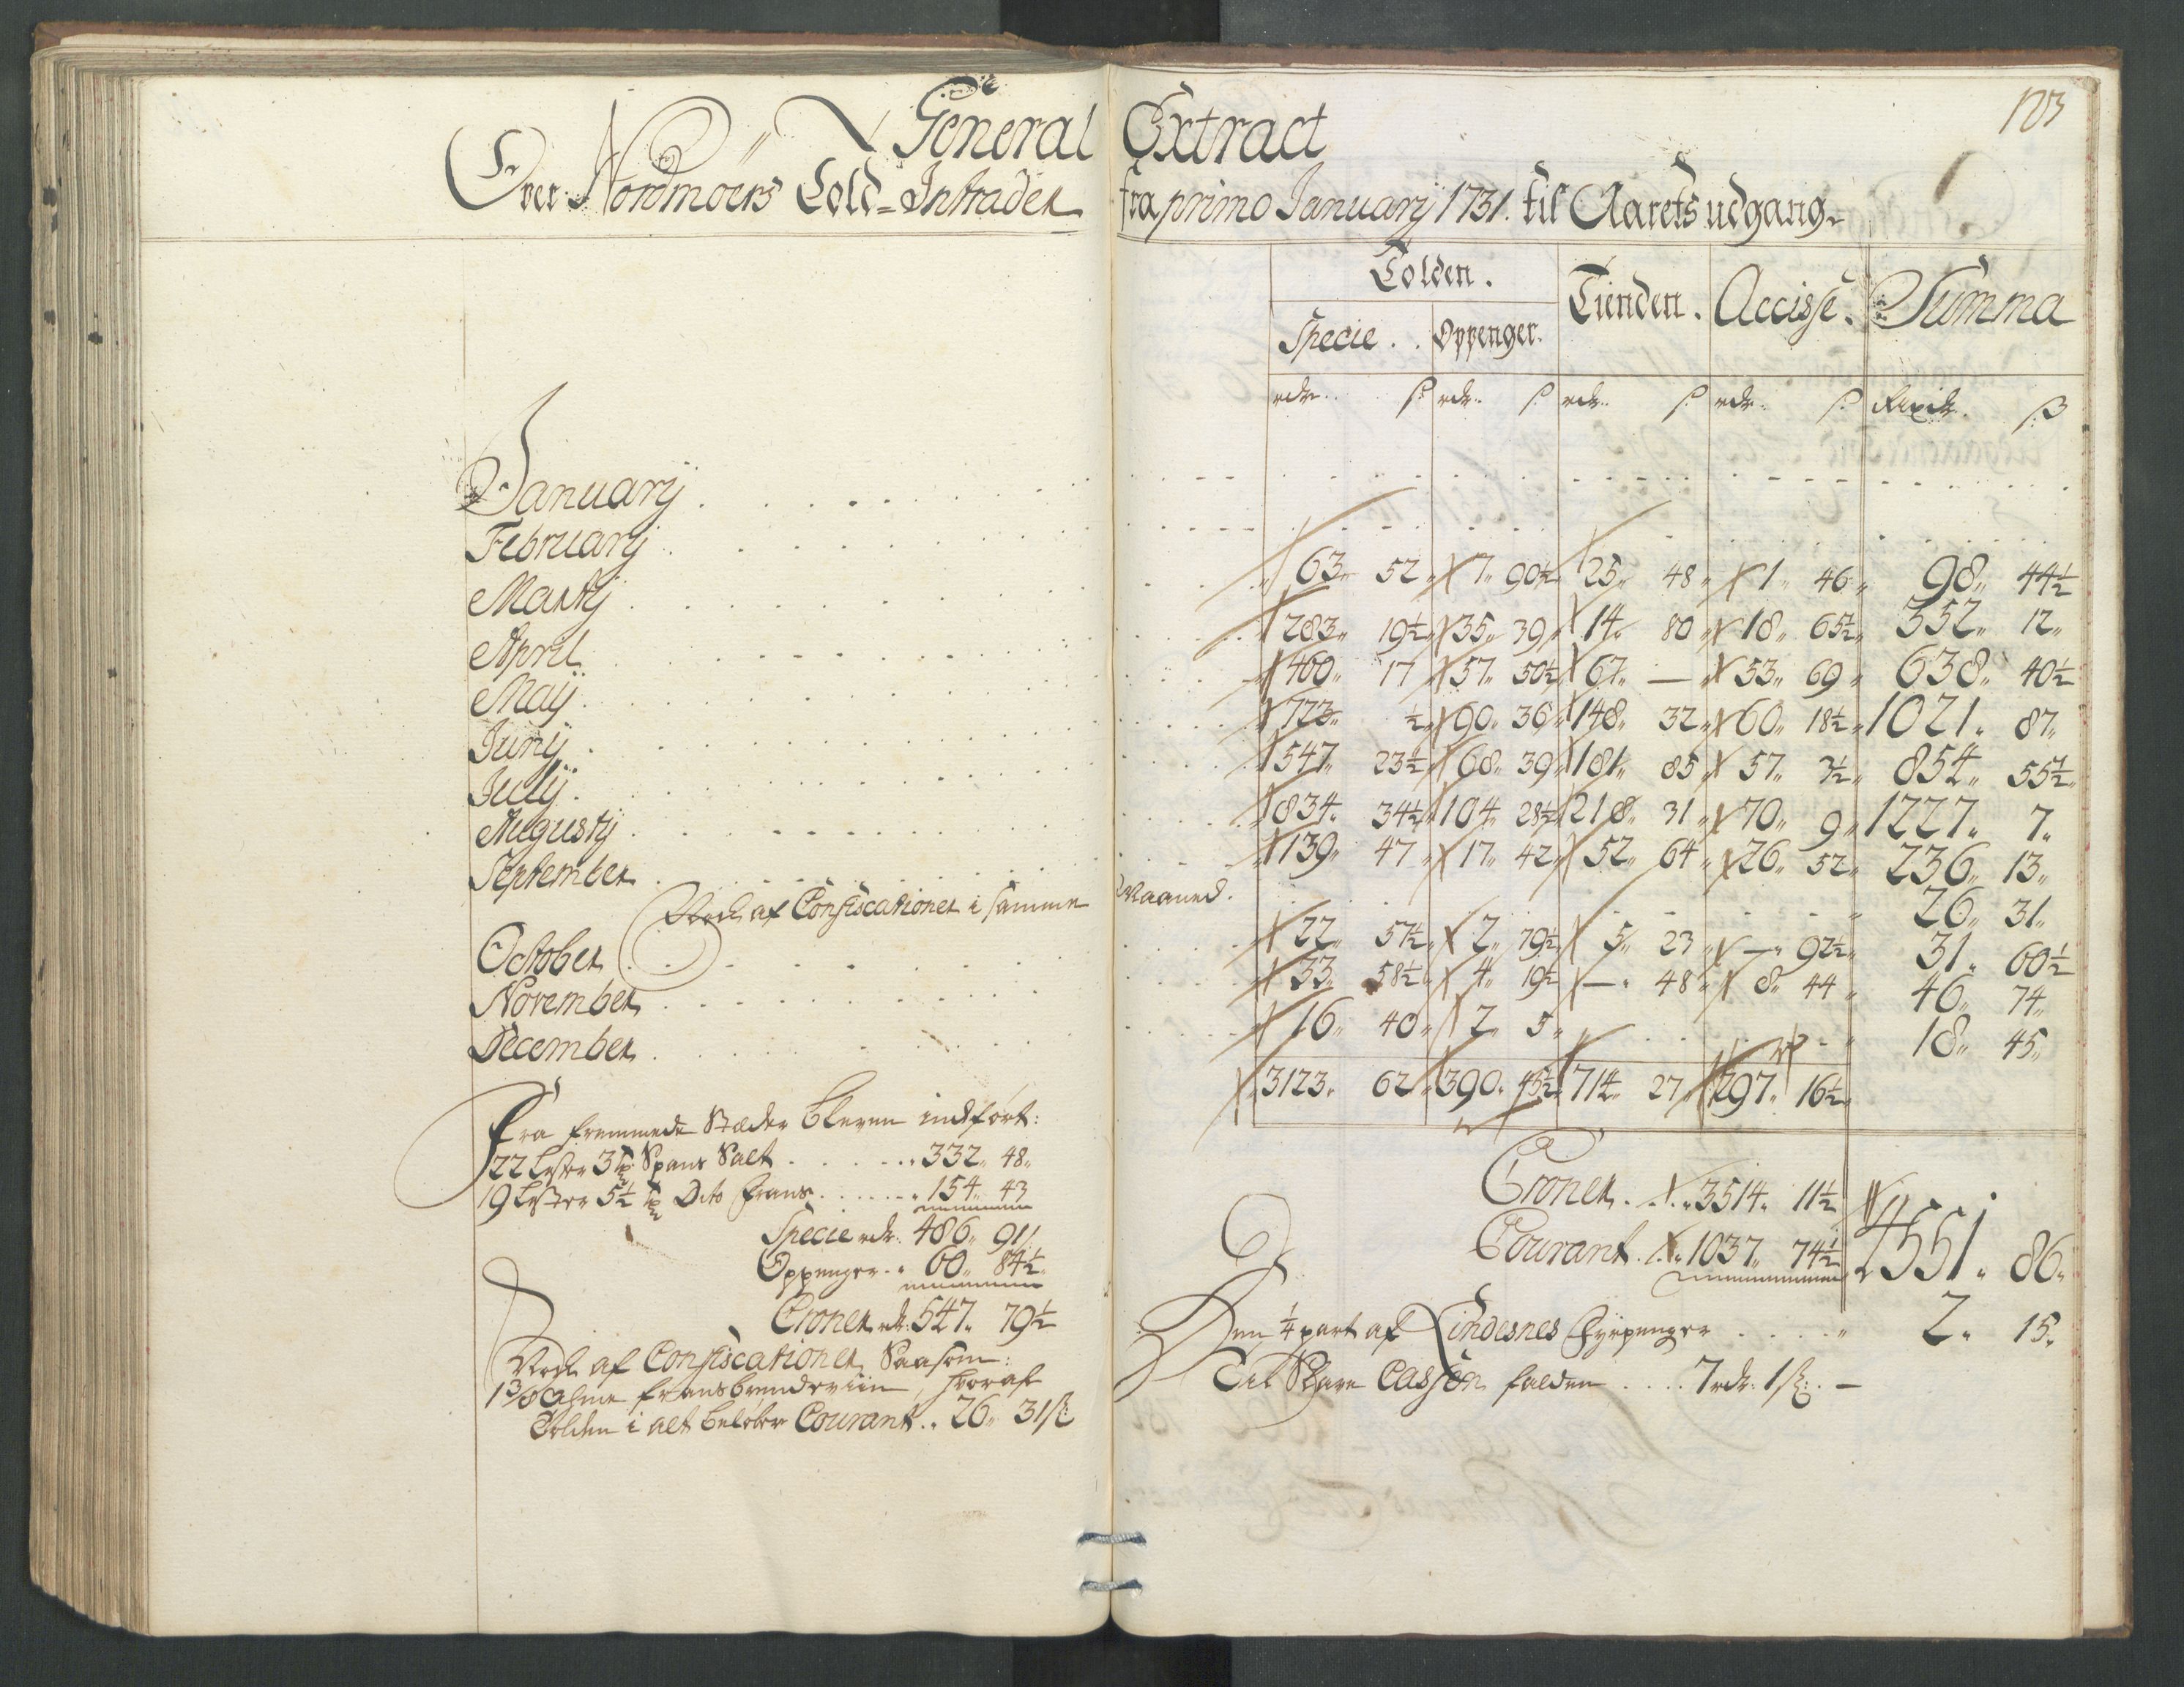 General Extract
Over Nordmoers Told=Intrader fra primo Januarij 1731. til Aarets udgang
103
Tolden. Tienden. Accisse. Summa
Specie.. Oppenger.
rdr. ß rdr. ß rdr. ß rdr. ß Rixdr. ß
Januarij
Februarij
Martij 63 52 7 90½ 25 48 1 46 98 44½
April 283 19½ 35 39 14 80 18 65½ 352 12
Maij 460 17 57 50½ 67 — 53 69 638 40½
Junij 723 ½ 90 36 148 32 60 18½ 1021 87
Julij 547 23½ 68 39 181 85 57 3½ 854 55½
Augustij 834 34½ 104 28½ 218 31 70 9 1227 7
September 139 47 17 42 52 64 26 52 236 13
Nock af Confiscationer i samme Maaned. 26 31
October 22 57½ 2 79½ 5 23 — 92½ 31 60½
November 33 58½ 4 19½ — 48 8 44 46 74
December 16 40 2 5 18 45
3123 62 390 45½ 714 27 297 16½
Fra fremmede Stæder bleven indført:
22 Lester 3 Spans Salt 332 48
19 Lester 5½ Dito Frans 154 43
Specie rdr. 486 91
Oppenger 60 84½
Cronen rdr. 547 79½
Nock af Confiscationer, Saasom:
1⅜ Ahme fransbrendeviin, hvoraf
Tolden i alt beløber Courant 26 31 ß
Cronen 3514 11½
Courant 1037 74½ 4551 86
Den ¼ part af Lindesnes Fyrpenger 2 15
Til Skare Cassen falden 7 rdr. 1 ß —